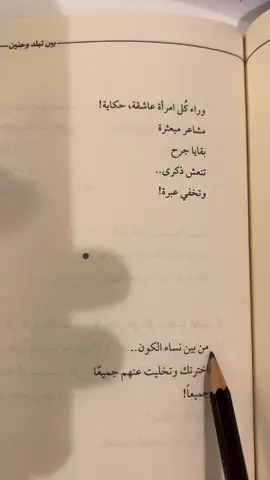 بين تبلد وحنين
وراء كُل امرأة عاشقة، حكاية!
مشاعر مبعثرة
بقايا جرح
تنعش ذكرى..
وتخفي عبرة!
*
من بين نساء الكون..
اخترتك وتخليت عنهم جميعًا
جميعاً!